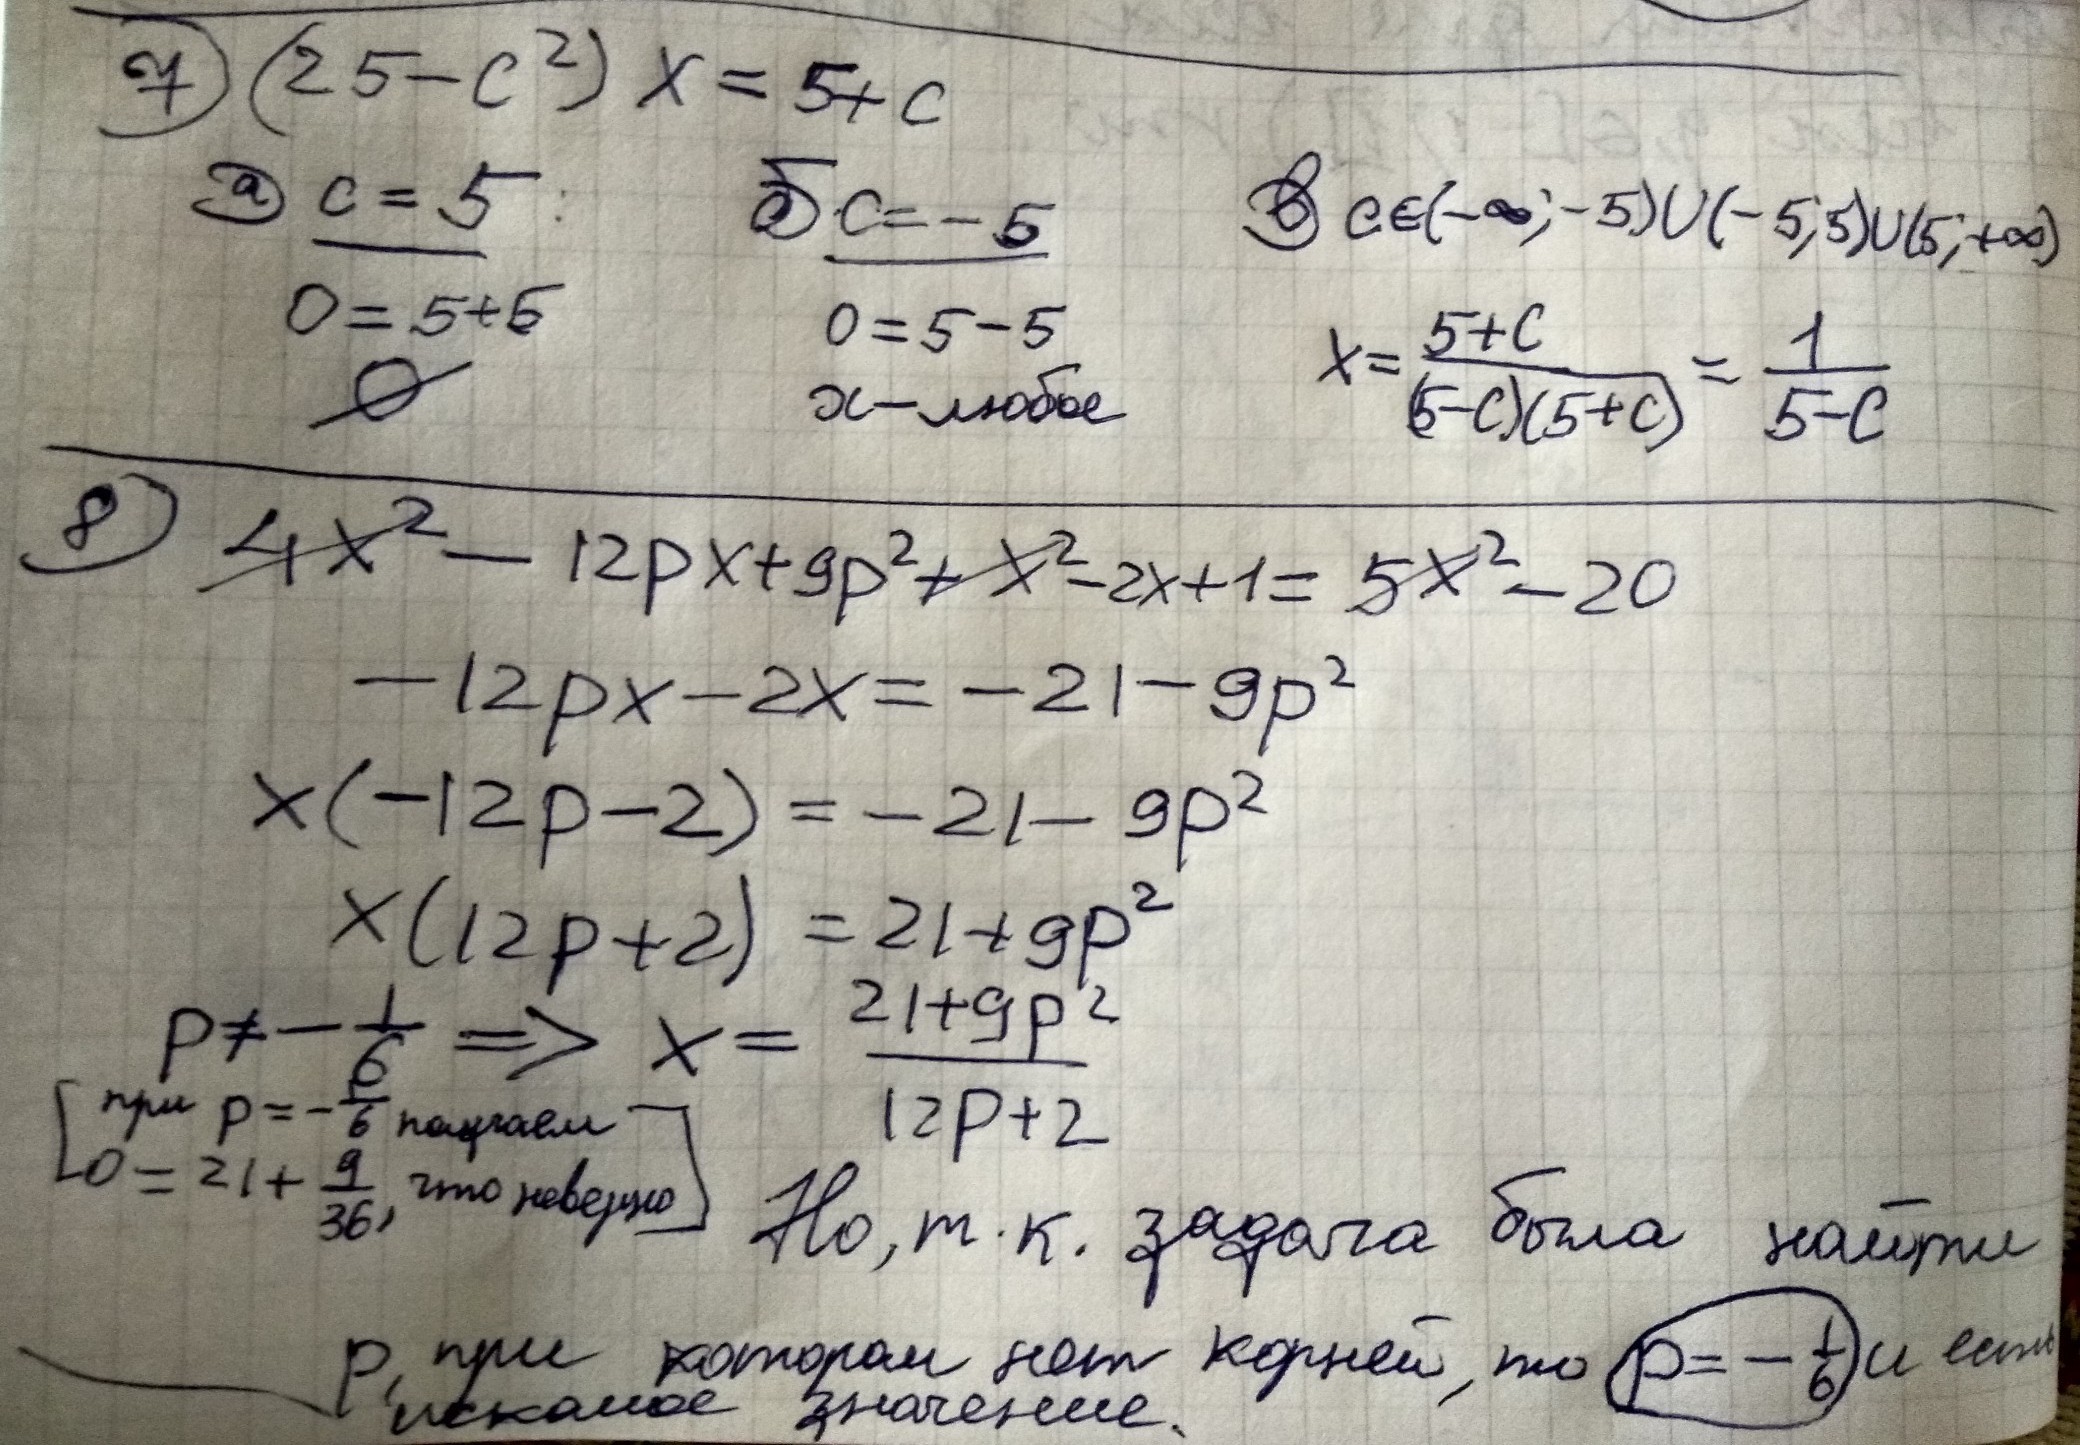 7) (25-c²) x = 5+c
а) c = 5:
0 = 5+5
∅
б) c = -5
0 = 5-5
x - любое
в) c∈(-∞;-5)∪(-5;5)∪(5;+∞)
x = (5+c)/((5-c)(5+c)) = 1/(5-c)
8) 4x² - 12px + 9p² + x² - 2x + 1 = 5x² - 20
-12px - 2x = -21 - 9p²
x(-12p-2) = -21 - 9p²
x(12p+2) = 21 + 9p²
p ≠ -1/6 => x = (21+9p²)/(12p+2)
[при p = -1/6 получаем
0 = 21 + 9/36, что неверно]
Но, т.к. задача была найти
p, при котором нет корней, то p = -1/6 и есть
искомое значение.